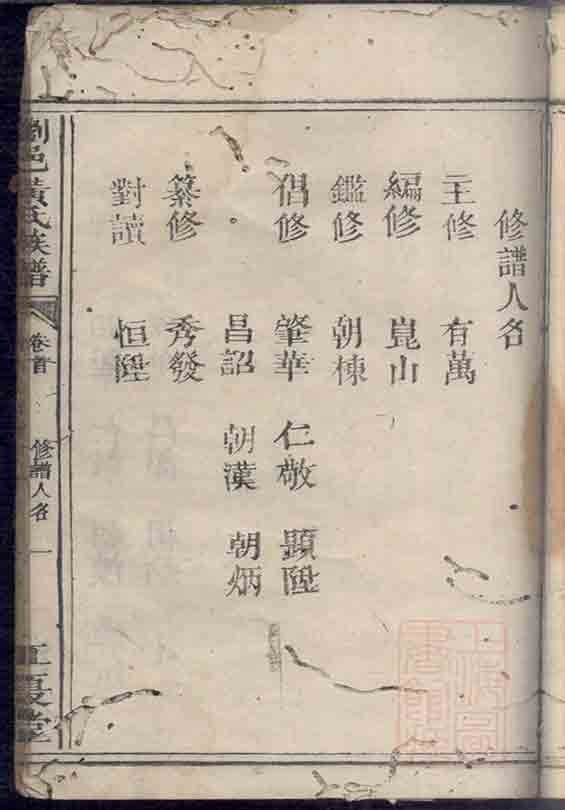 修譜人名
主修 有萬
編修 崑山
鑑修 朝棟
倡修 肇華 仁敬 顯陞
昌詔 朝漢 朝炳
纂修 秀發
對讀 恒陞
瀏邑黃氏族譜 卷首 修譜人名 一 江夏堂